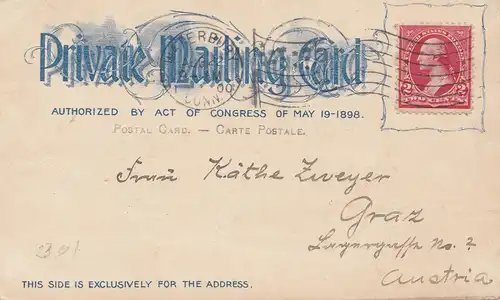 Private Mailing Card
CONN.
2 2
AUTHORIZED BY ACT OF CONGRESS OF MAY 19-1898.
POSTAL CARD. — CARTE POSTALE.
Frau Käthe Zweyer
Graz
Lagergasse No. 2
Austria
THIS SIDE IS EXCLUSIVELY FOR THE ADDRESS.